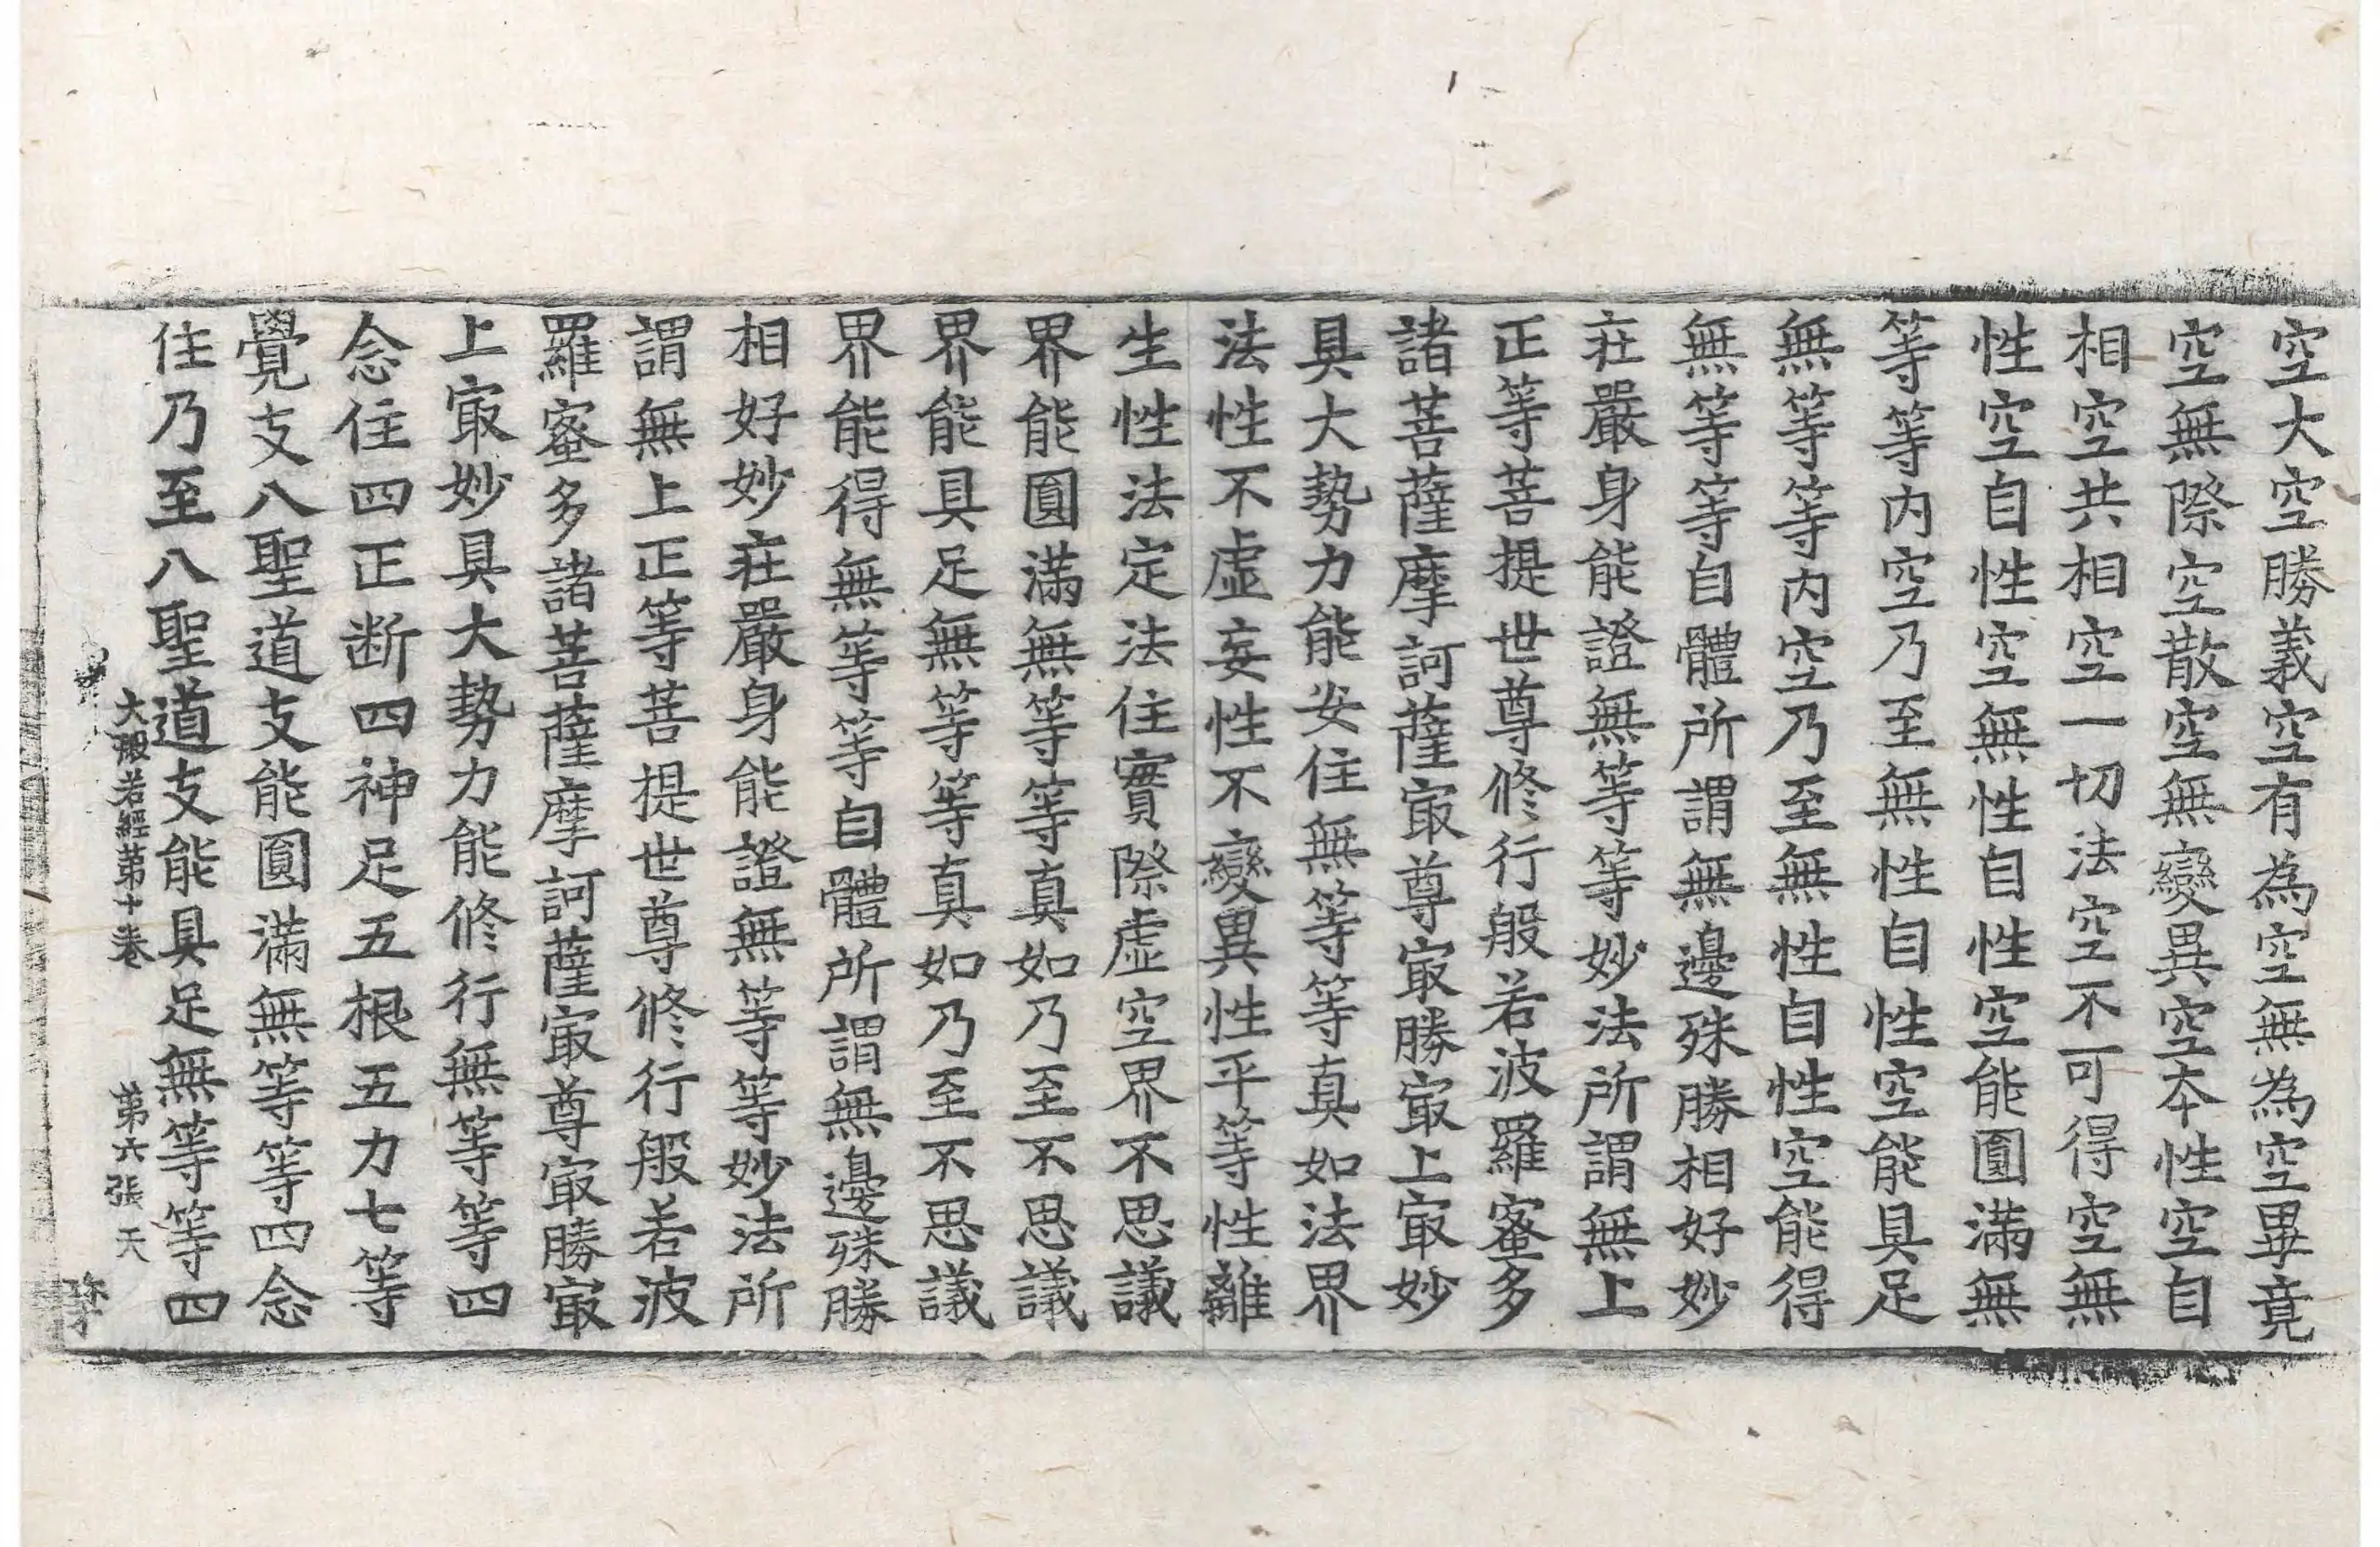 空大空勝義空有為空無為空畢竟
空無際空散空無變異空本性空自
相空共相空一切法空不可得空無
性空自性空無性自性空能圓滿無
等等内空乃至無性自性空能具足
無等等内空乃至無性自性空能得
無等等自體所謂無邊殊勝相好妙
莊嚴身能證無等等妙法所謂無上
正等菩提世尊修行般若波羅蜜多
諸菩薩摩訶薩㝡尊㝡勝㝡上㝡妙
具大勢力能安住無等等真如法界
法性不虛妄性不變異性平等性離
生性法定法住實際虛空界不思議
界能圓滿無等等真如乃至不思議
界能具足無等等真如乃至不思議
界能得無等等自體所謂無邊殊勝
相好妙莊嚴身能證無等等妙法所
謂無上正等菩提世尊修行般若波
羅蜜多諸菩薩摩訶薩㝡尊㝡勝㝡
上㝡妙具大勢力能修行無等等四
念住四正断四神足五根五力七等
覺支八聖道支能圓滿無等等四念
住乃至八聖道支能具足無等等四
大般若經第十卷　第六張　天